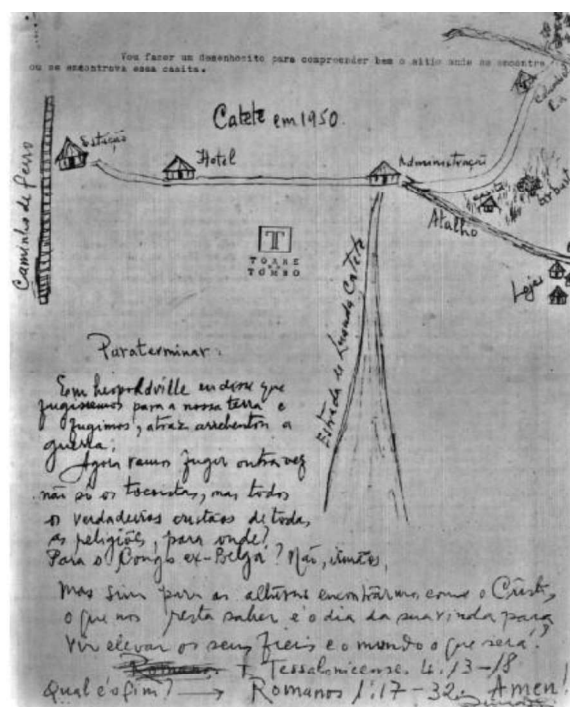 Vou fazer um desenhosito para compreender bem o sitio onde se encontra
ou se encontrava essa casita.
Catete em 1950.
Caminho de ferro
Estação
Hotel
Administração
Atalho
Lojas
T
TORRE
TOMBO
Estrada de Luanda Catete
Para terminar:
Em Leopoldville eu disse que
fugissemos para a nossa terra e
fugimos, atraz arrebentou a
guerra;
Agora vamos fugir outra vez
não só os tocoistas, mas todos
os verdadeiros cristãos de todas
as religiões, para onde?
Para o Congo ex-Belga? Não, irmãos,
Mas sim para as alturas encontrarmos com o Cristo,
o que nos resta saber é o dia da sua vinda para
vir elevar os seus fieis e o mundo o que será?
Tessalonicense. 4.13-18
Qual é o fim? → Romanos 1:17-32. Amen!